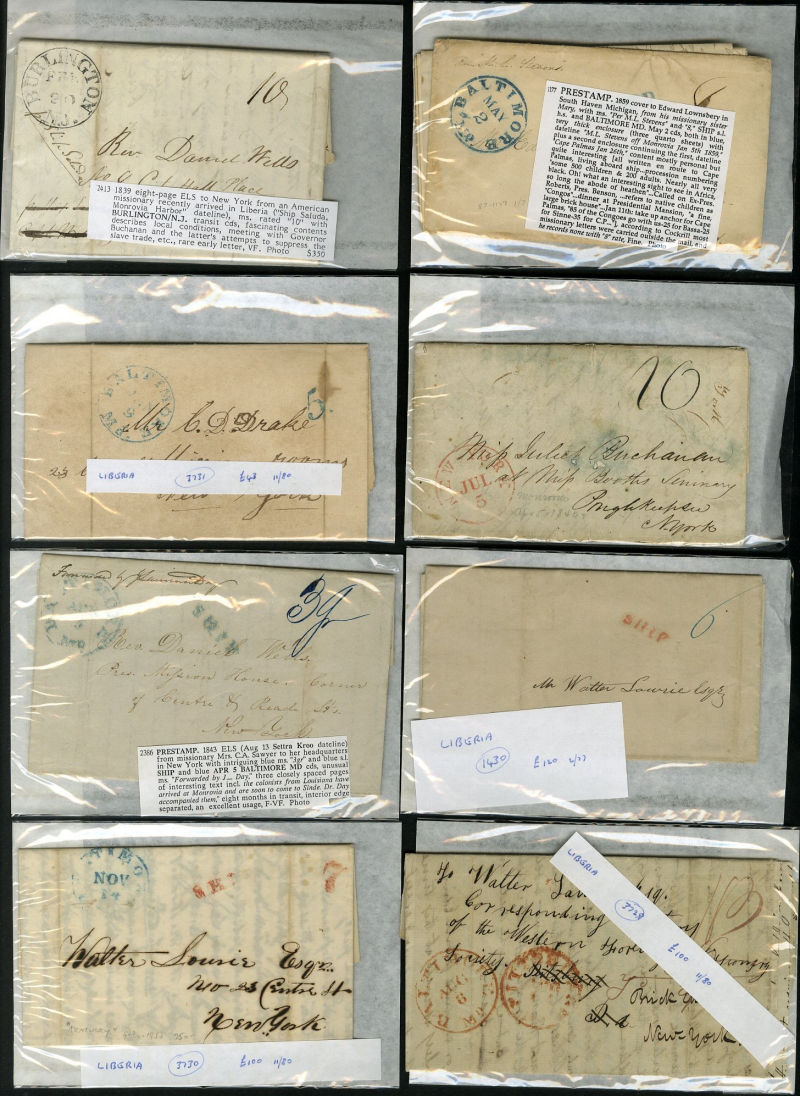 BURLINGTON
FEB
20
N.J.
10
Rev Daniel Wells
2413 1839 eight-page ELS to New York from an American
missionary recently arrived in Liberia ("Ship Saluda,
Monrovia Harbor" dateline), ms. rated "10" with
BURLINGTON/N.J. transit cds, fascinating contents
describes local conditions, meeting with Governor
Buchanan and the latter's attempts to suppress the
slave trade, etc., rare early letter, VF. Photo $350
BALTIMORE
MAY
2
1177 PRESTAMP. 1859 cover to Edward Lownsbery in
South Haven Michigan, from his missionary sister
Mary, with ms. "Per M.L. Stevens" and "8," SHIP s.l.
h.s. and BALTIMORE MD. May 2 cds, both in blue,
very thick enclosure (three quarto sheets) with
dateline "M.L. Stevens off Monrovia Jan 5th 1859,"
plus a second enclosure continuing the first, dateline
"Cape Palmas Jan 26th," content mostly personal but
quite interesting [all written en route to Cape
Palmas, living aboard ship...procession numbering
"some 500 children & 200 adults. Nearly all very
black. Oh! what an interesting sight to see in Africa,
so long the abode of heathen"...Called on Ex-Pres.
Roberts, Pres. Benson, ...refers to native children as
"Congos"...dinner at Presidential Mansion, "a fine,
large brick house"...Jan 11th: take up anchor for Cape
Palmas, "65 of the Congoes go with us-25 for Bassa-25
for Sinne-35 for C.P."], according to Cockrill most
missionary letters were carried outside the mail, and
he records none with "8" rate, Fine. Photo
BALTIMORE
Md.
5
Mr C. D. Drake
LIBERIA 3731 £43 11/80
New York
JUL
5
Miss Juliet Buchanan
at Miss Booths Seminary
Poughkeepsie
N.York
Forwarded by
SHIP
Rev. Daniel Wells
Pres. Mission House. Corner
of Centre & Reade Sts
New York
2386 PRESTAMP. 1843 ELS (Aug 13 Settra Kroo dateline)
from missionary Mrs. C.A. Sawyer to her headquarters
in New York with intriguing blue ms. "3gf" and blue s.l.
SHIP and blue APR 5 BALTIMORE MD cds, unusual
ms. "Forwarded by J__ Day," three closely spaced pages
of interesting text incl. the colonists from Louisiana have
arrived at Monrovia and are soon to come to Sinde. Dr. Day
accompanied them," eight months in transit, interior edge
separated, an excellent usage, F-VF. Photo
SHIP
6
Mr Walter Lowrie Esqr
LIBERIA
1430 £120 2/77
NOV
14
Walter Lowrie Esqr
No 23 Centre St
New York
LIBERIA 3730 £100 11/80
To Walter
Corresponding
of the Western
Society.
BALTIMORE
AUG
6
Brick
New York.
LIBERIA
3729
£100
11/80